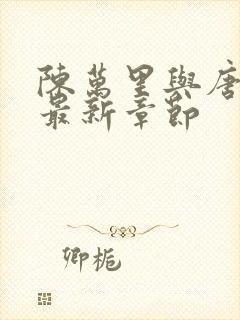 陳萬里與唐
最新章節
卿梔